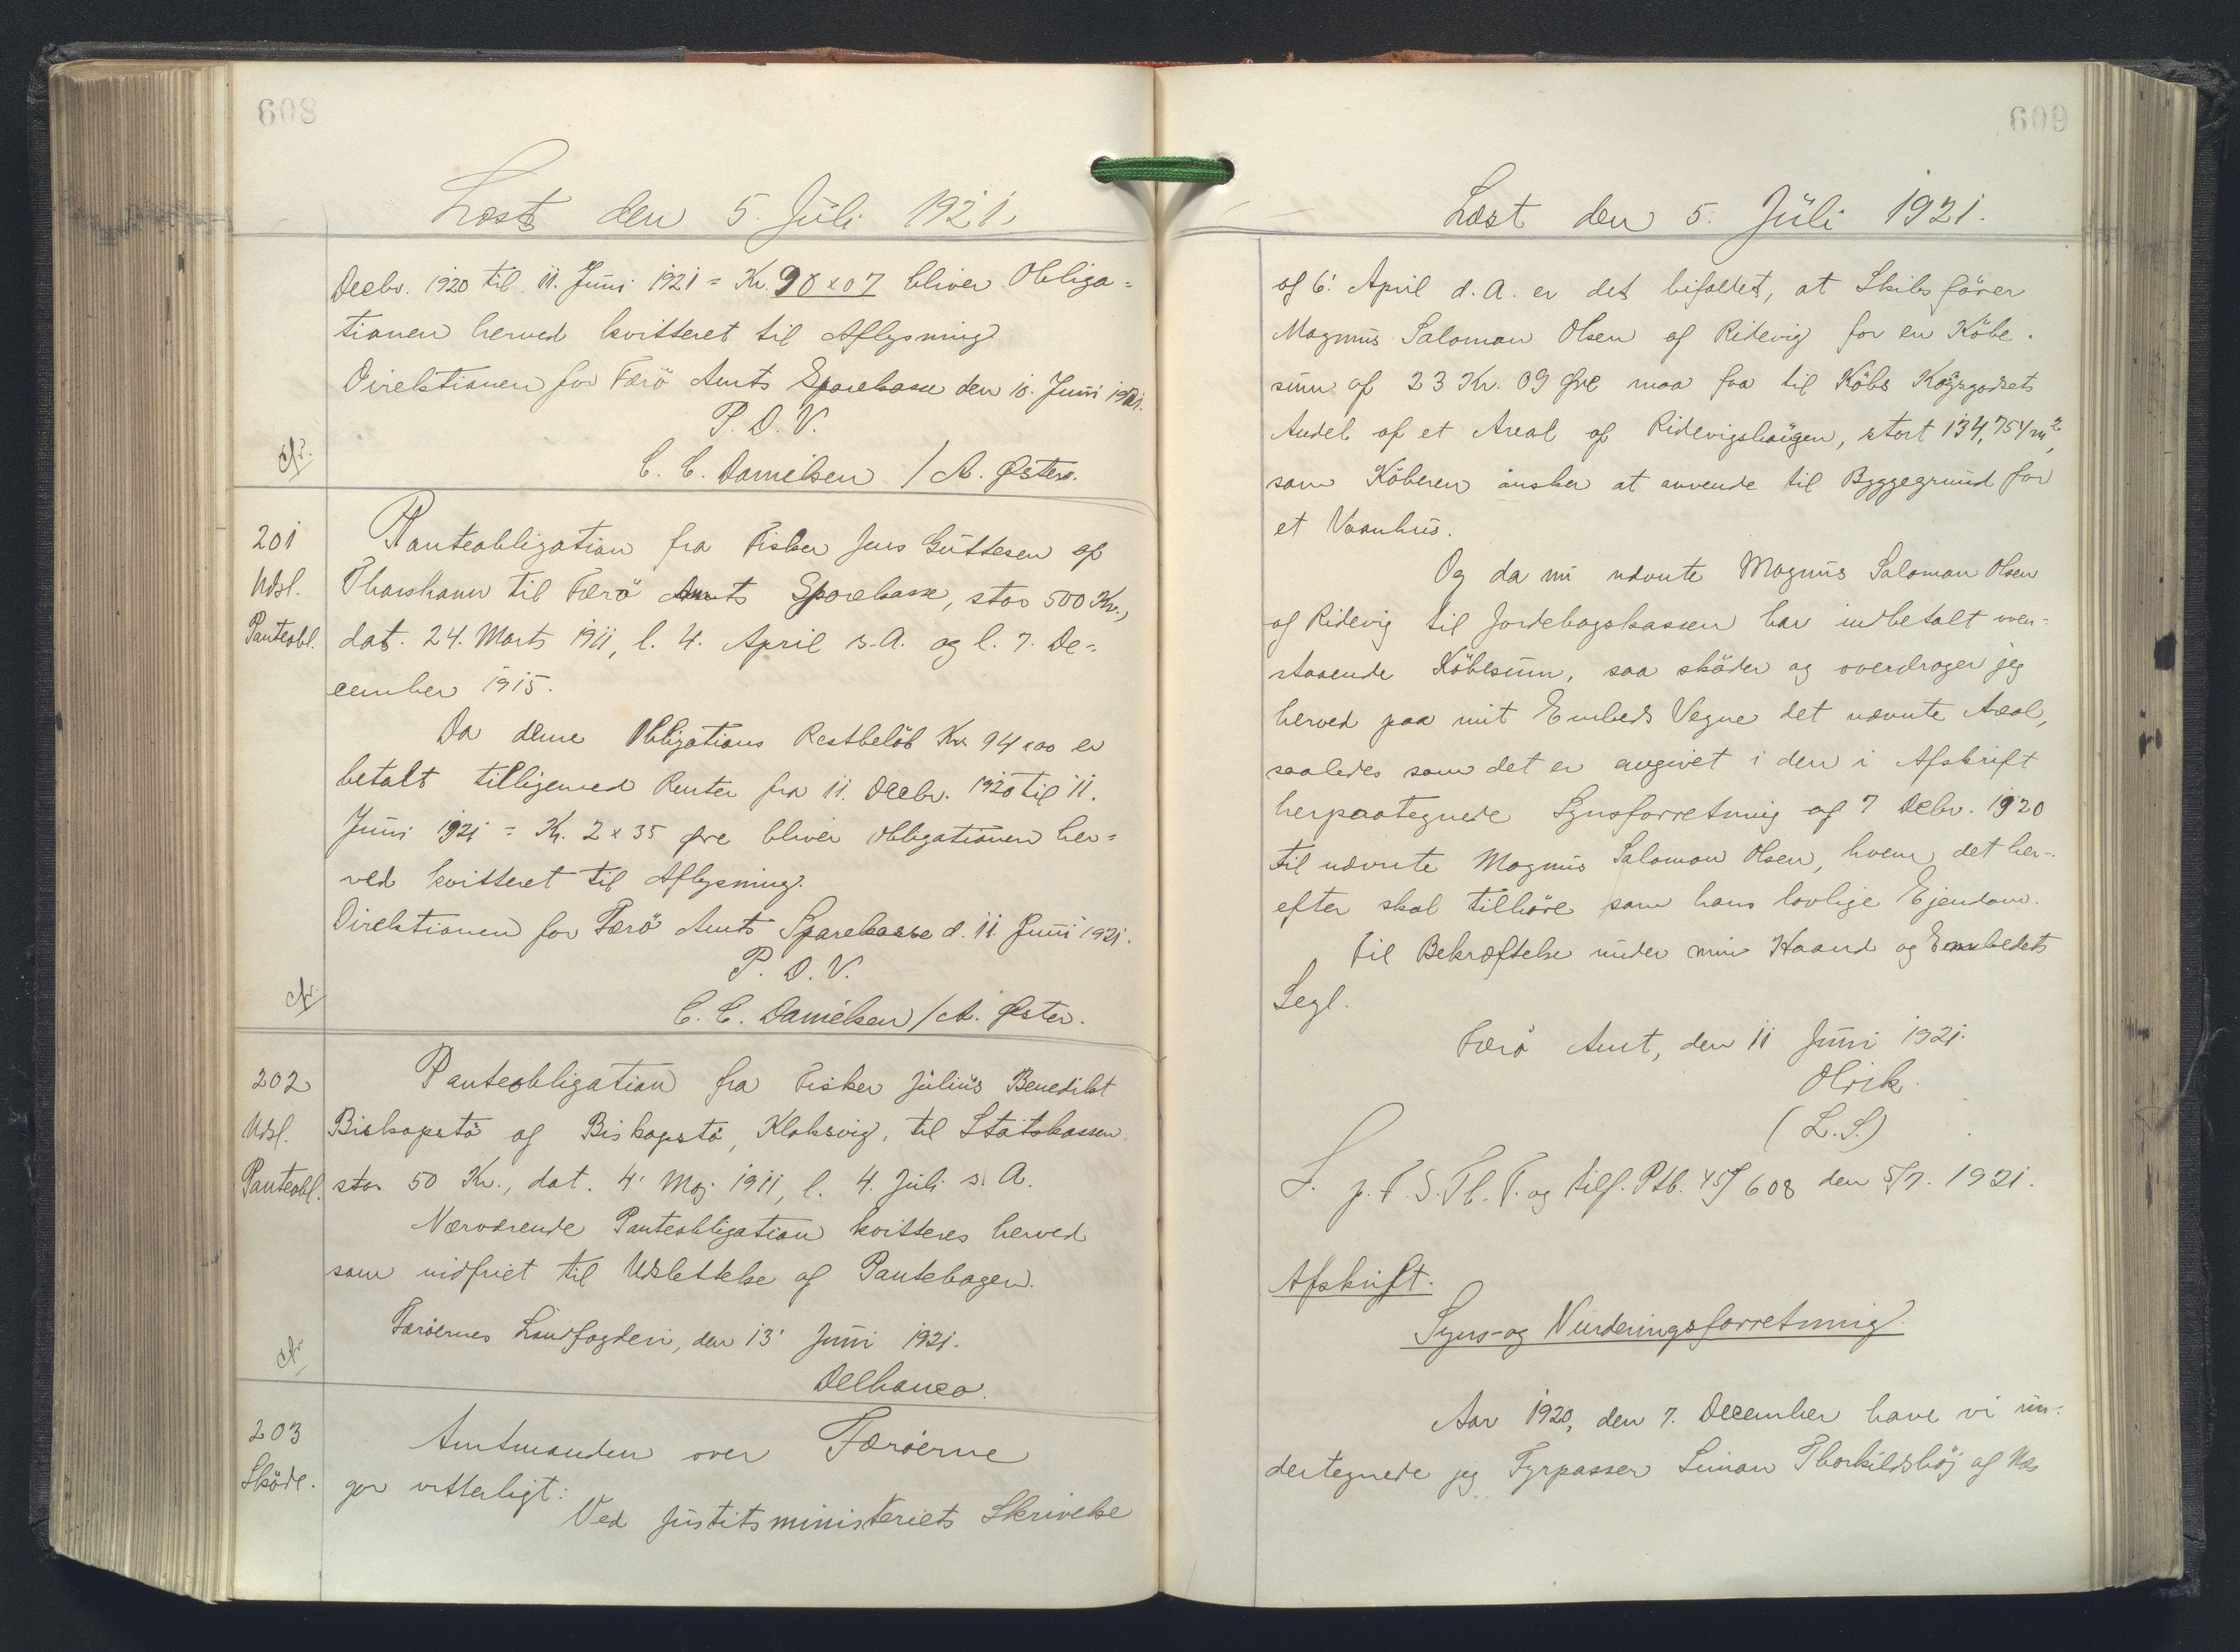 608
Læst den 5. Juli 1921.
Decbr. 1920 til 11. Juni 1921 = Kr. 98 x 07 bliver Obliga=
tionen herved kvitteret til Aflysning
Direktionen for Færö Amts Sparekasse den 10. Juni 1921.
P. D. V.
C. C. Danielsen / A. Øster.
201
Udsl.
Panteobl.
Panteobligation fra Fisker Jens Guttesen af
Thorshavn til Færö Amts Sparekasse, stor 500 Kr.,
dat. 24. Marts 1911, l. 4. April s. A. og l. 7. De=
cember 1915.
Da denne Obligations Restbelöb Kr. 94 x 00 er
betalt tilligemed Renter fra 11. Decbr. 1920 til 11.
Juni 1921 = Kr. 2 x 35 Øre bliver Obligationen her=
ved kvitteret til Aflysning.
Direktionen for Færö Amts Sparekasse d. 11. Juni 1921.
P. D. V.
C. C. Danielsen / A. Øster.
202
Udsl.
Panteobl.
Panteobligation fra Fisker Julius Benedikt
Biskopstö af Biskopstö, Klaksvig, til Statskassen,
stor 50 Kr., dat. 4' Maj 1911, l. 4. Juli s. A.
Nærværende Panteobligation kvitteres herved
som indfriet til Udslettelse af Pantebogen.
Færöernes Landfogderi, den 13' Juni 1921.
Delbanco.
203
Sköde.
Amtmanden over Færöerne
gör vitterligt:
Ved Justitsministeriets Skrivelse
609
Læst den 5. Juli 1921.
af 6' April d. A. er det bifaldet, at Skibsförer
Magnus Salomon Olsen af Ridevig for en Köbe-
sum af 23 Kr. 09 Øre maa faa til Köbs Kongsgodsets
Andel af et Areal af Ridevigshaugen, stort 134,754 m²,
som Köberen önsker at anvende til Byggegrund for
et Vaanhus.
Og da nu nævnte Magnus Salomon Olsen
af Ridevig til Jordebogskassen har indbetalt oven-
staaende Köbesum, saa sköder og overdrager jeg
herved paa mit Embeds Vegne det nævnte Areal,
saaledes som det er angivet i den i Afskrift
herpaategnede Synsforretning af 7 Debr. 1920
til nævnte Magnus Salomon Olsen, hvem det her-
efter skal tilhöre som hans lovlige Ejendom.
Til Bekræftelse under min Haand og Embedets
Segl.
Færö Amt, den 11 Juni 1921.
Olrik.
(L. S.)
L. p. F. S. Th. T. og tilf. Ptb. 45/608 den 5/7. 1921.
Afskrift.
Syns- og Vurderingsforretning.
Aar 1920, den 7. December have vi un-
dertegnede jeg Fyrpasser Simon Thorkildshöj af Næs